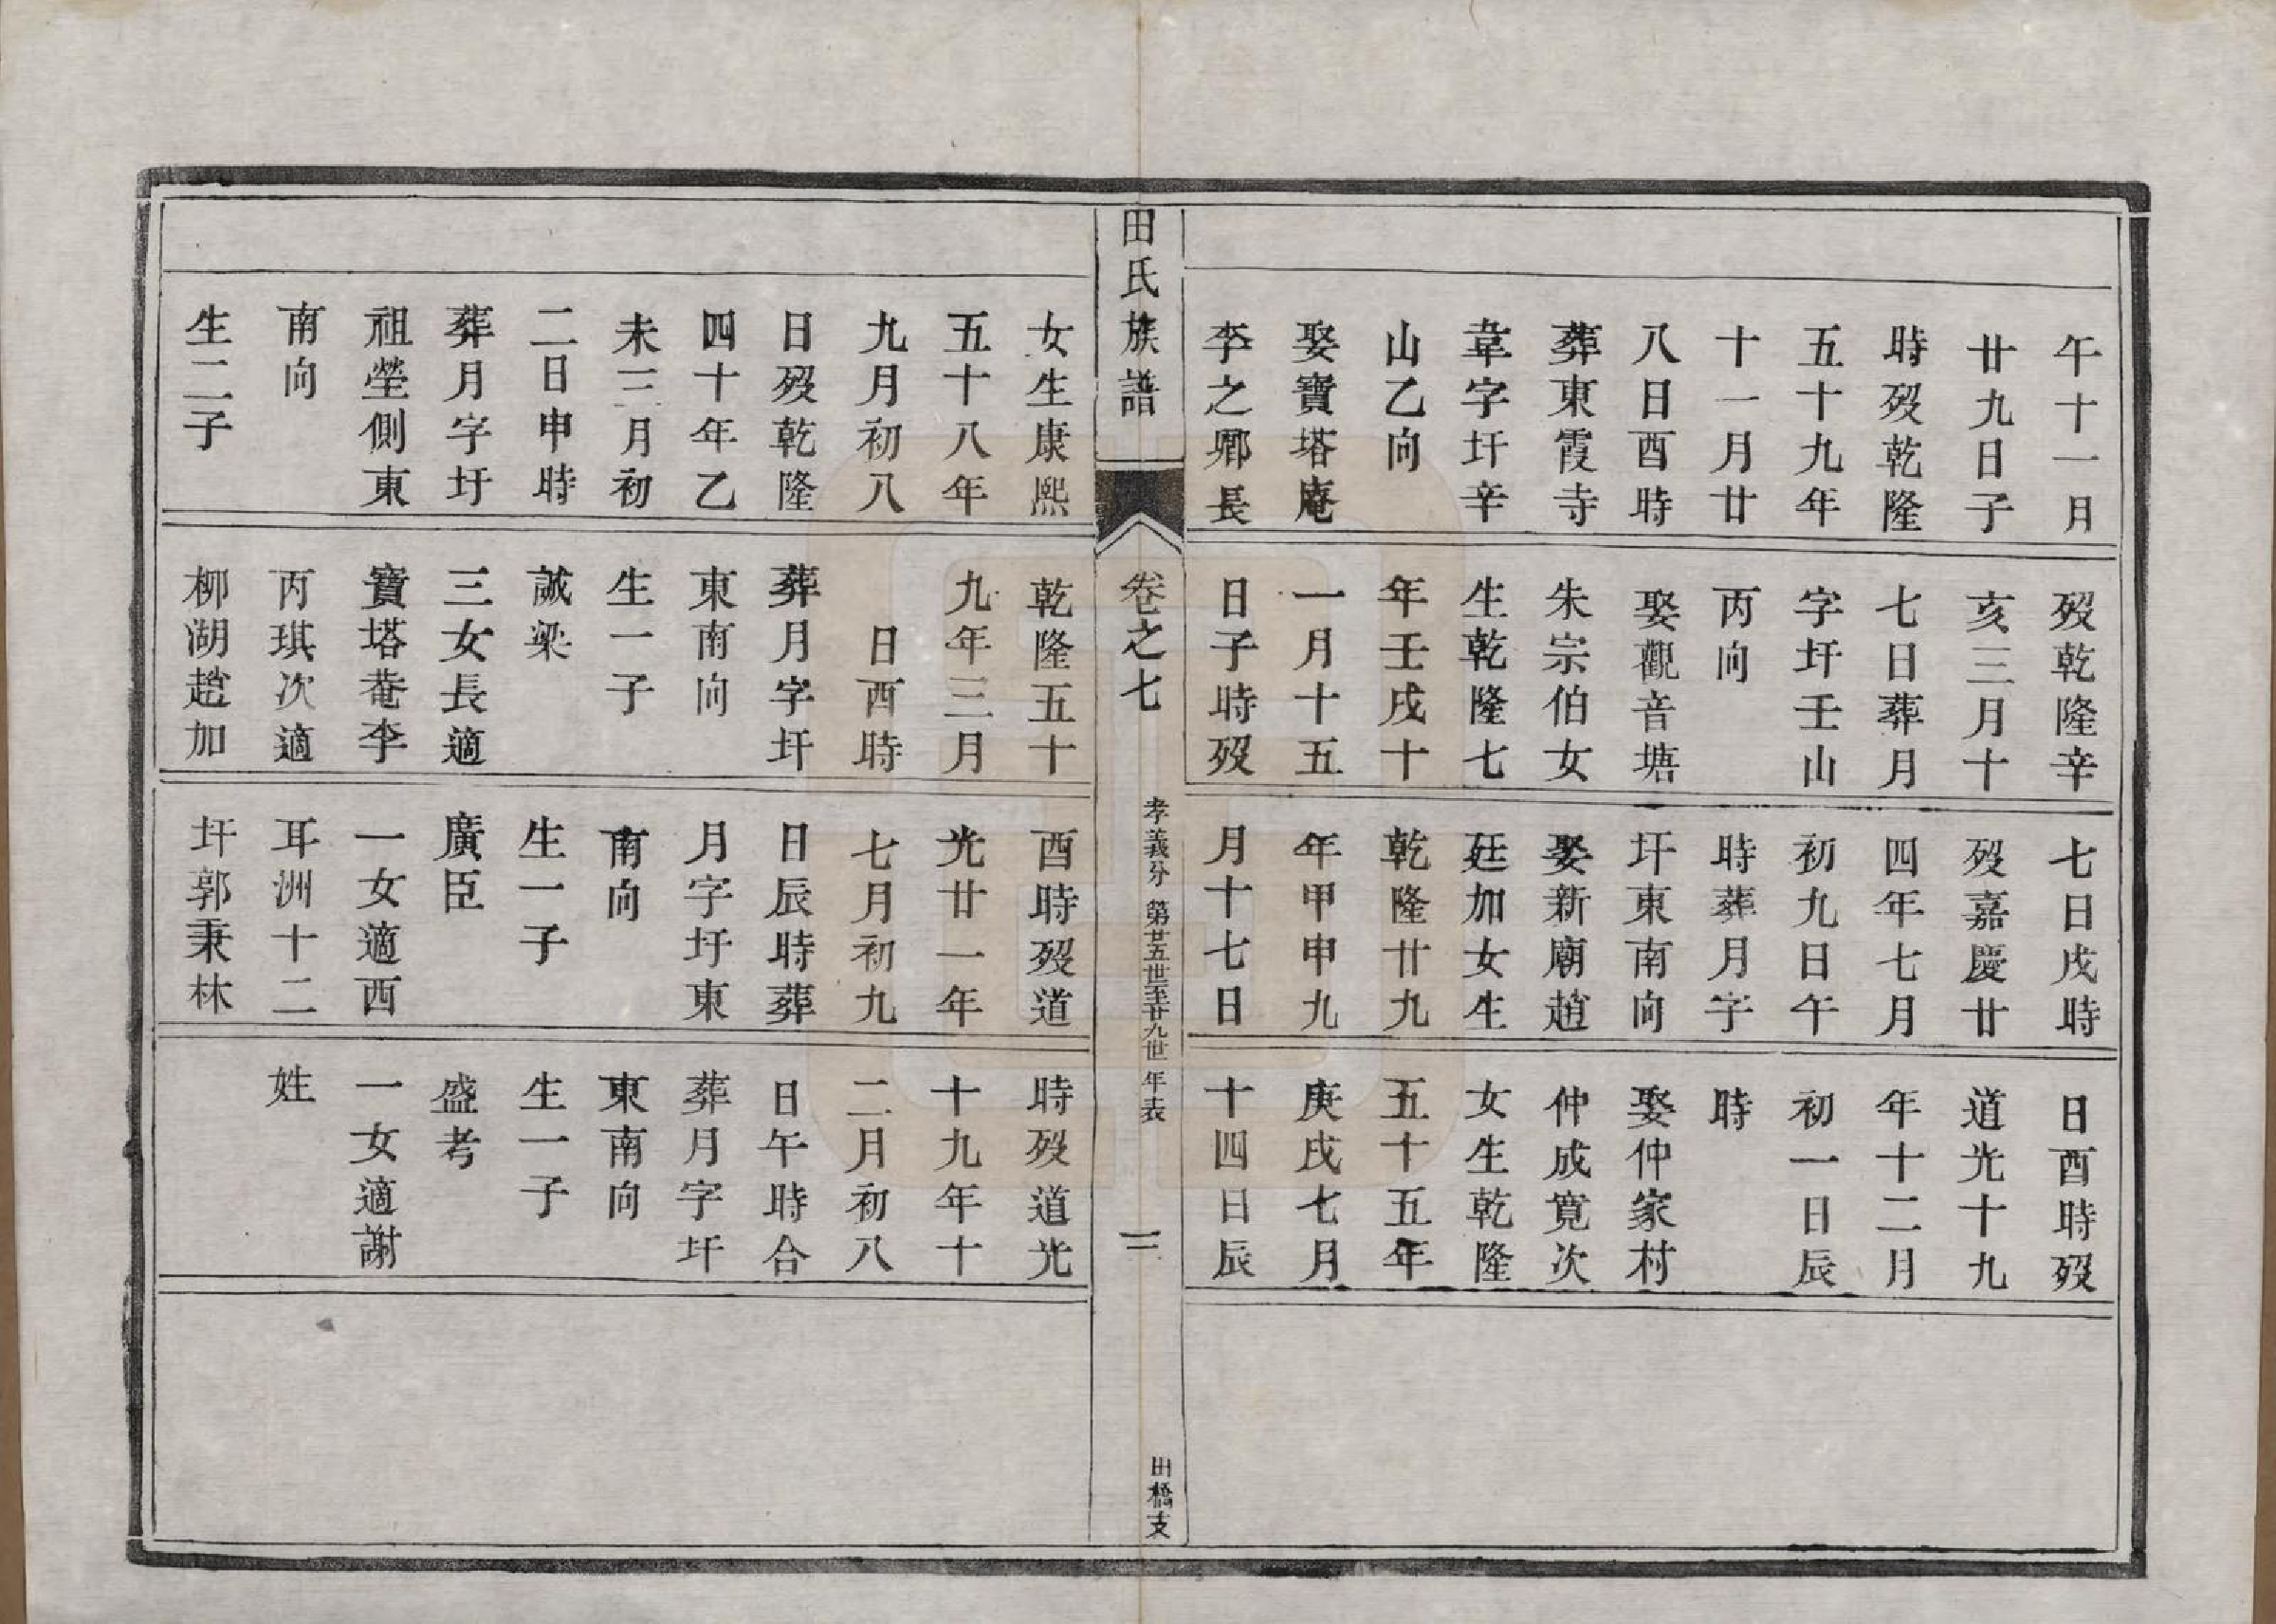 午十一月
廿九日子
時歿乾隆
五十九年
十一月廿
八日酉時
葬東霞寺
韋字圩辛
山乙向
娶寶塔庵
李之卿長
歿乾隆辛
亥三月十
七日葬月
字圩壬山
丙向
娶觀音塘
朱宗伯女
生乾隆七
年壬戌十
一月十五
日子時歿
七日戌時
歿嘉慶廿
四年七月
初九日午
時葬月字
圩東南向
娶新廟趙
廷加女生
乾隆廿九
年甲申九
月十七日
日酉時歿
道光十九
年十二月
初一日辰
時
娶仲家村
仲成寬次
女生乾隆
五十五年
庚戌七月
十四日辰
田氏族譜
卷之七
孝義分 第廿五世至廿九世 年表
二
田橋支
女生康熙
五十八年
九月初八
日歿乾隆
四十年乙
未三月初
二日申時
葬月字圩
祖塋側東
南向
生二子
乾隆五十
九年三月
日酉時
葬月字圩
東南向
生一子
誠梁
三女長適
寶塔菴李
丙琪次適
柳湖趙加
酉時歿道
光廿一年
七月初九
日辰時葬
月字圩東
南向
生一子
廣臣
一女適西
耳洲十二
圩郭秉林
時歿道光
十九年十
二月初八
日午時合
葬月字圩
東南向
生一子
盛考
一女適謝
姓